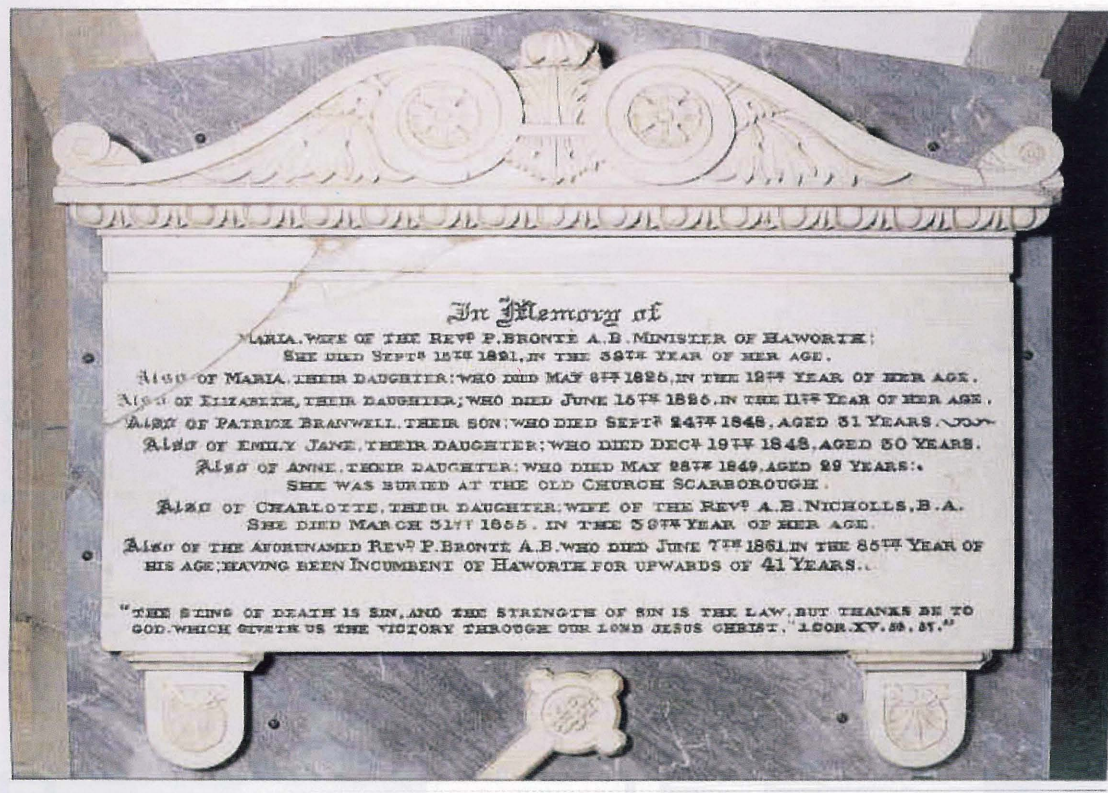 In Memory of
MARIA, WIFE OF THE REVD P. BRONTË A.B. MINISTER OF HAWORTH;
SHE DIED SEPTR 15TH 1821, IN THE 39TH YEAR OF HER AGE.
Also OF MARIA, THEIR DAUGHTER; WHO DIED MAY 6TH 1825, IN THE 12TH YEAR OF HER AGE.
Also OF ELIZABETH, THEIR DAUGHTER; WHO DIED JUNE 15TH 1825, IN THE 11TH YEAR OF HER AGE.
Also OF PATRICK BRANWELL, THEIR SON; WHO DIED SEPTR 24TH 1848, AGED 31 YEARS.
Also OF EMILY JANE, THEIR DAUGHTER; WHO DIED DECR 19TH 1848, AGED 30 YEARS.
Also OF ANNE, THEIR DAUGHTER; WHO DIED MAY 28TH 1849, AGED 29 YEARS:
SHE WAS BURIED AT THE OLD CHURCH SCARBOROUGH.
Also OF CHARLOTTE, THEIR DAUGHTER; WIFE OF THE REVD A.B. NICHOLLS, B.A.
SHE DIED MARCH 31ST 1855, IN THE 39TH YEAR OF HER AGE.
Also OF THE AFORENAMED REVD P. BRONTË A.B. WHO DIED JUNE 7TH 1861, IN THE 85TH YEAR OF
HIS AGE; HAVING BEEN INCUMBENT OF HAWORTH FOR UPWARDS OF 41 YEARS.
"THE STING OF DEATH IS SIN, AND THE STRENGTH OF SIN IS THE LAW, BUT THANKS BE TO
GOD, WHICH GIVETH US THE VICTORY THROUGH OUR LORD JESUS CHRIST." 1. COR. XV. 56, 57."